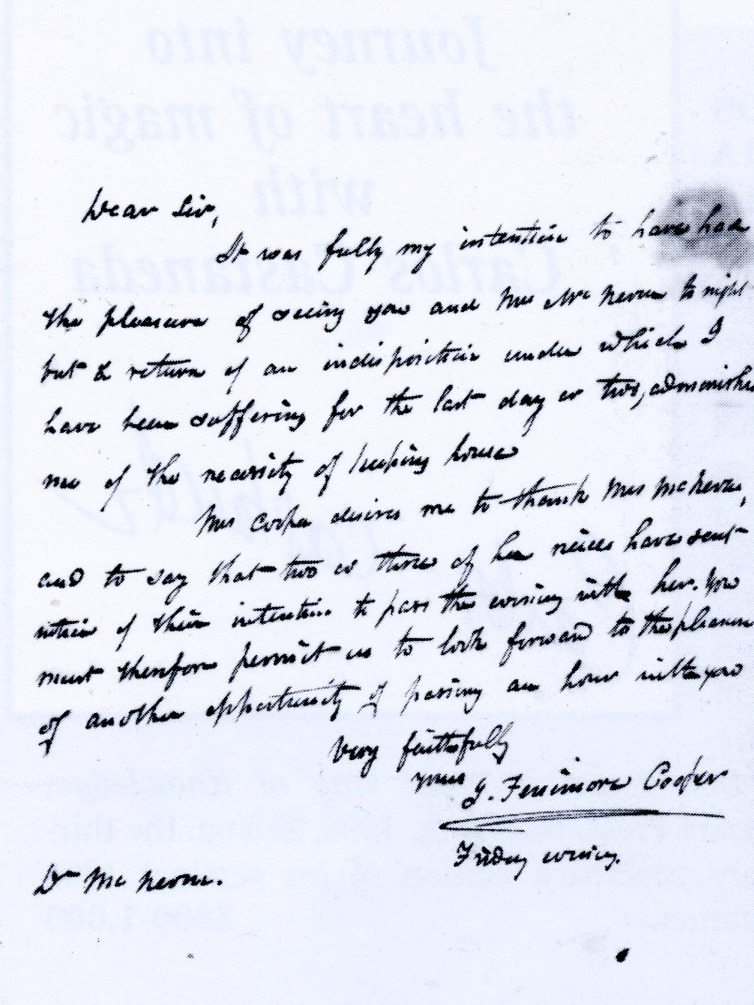 Dear Sir,
It was fully my intention to have had
the pleasure of seeing you and Mrs Mc Neven to night
but a return of an indisposition under which I
have been suffering for the last day or two, admonishes
me of the necessity of keeping house
Mrs Cooper desires me to thank Mrs McNeven,
and to say that two or three of her nieces have sent
notice of their intention to pass the evening with her. You
must therefore permit us to look forward to the pleasure
of another opportunity of passing an hour with you
Very faithfully
yours
J. Fenimore Cooper
Friday evening.
Dr Mc Neven.
Journey into
the heart of magic
with
Carlos Castaneda
of knowledge